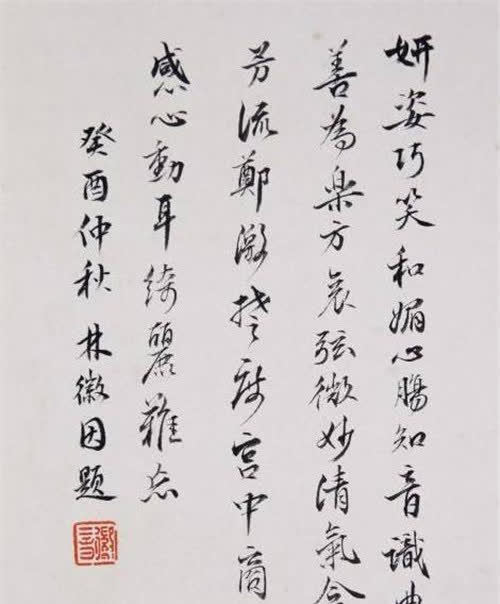 妍姿巧笑和媚心腸知音識曲
善為楽方哀弦微妙清氣含
芳流鄭激楚度宮中商
感心動耳綺麗難忘
癸酉仲秋 林徽因題
徽音